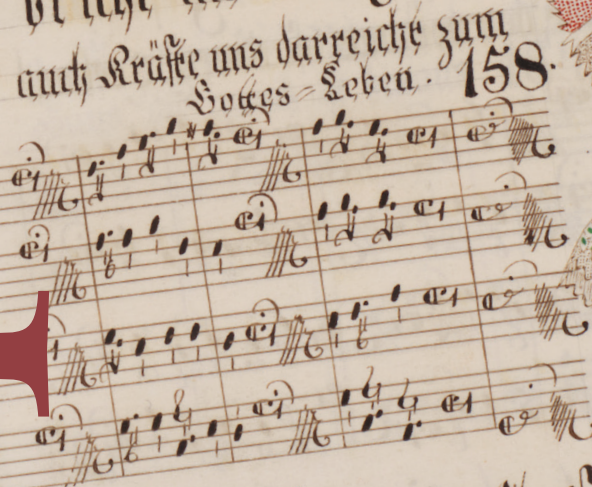 auch Kräfte uns darreicht zum
Gottes=Leben. 158.